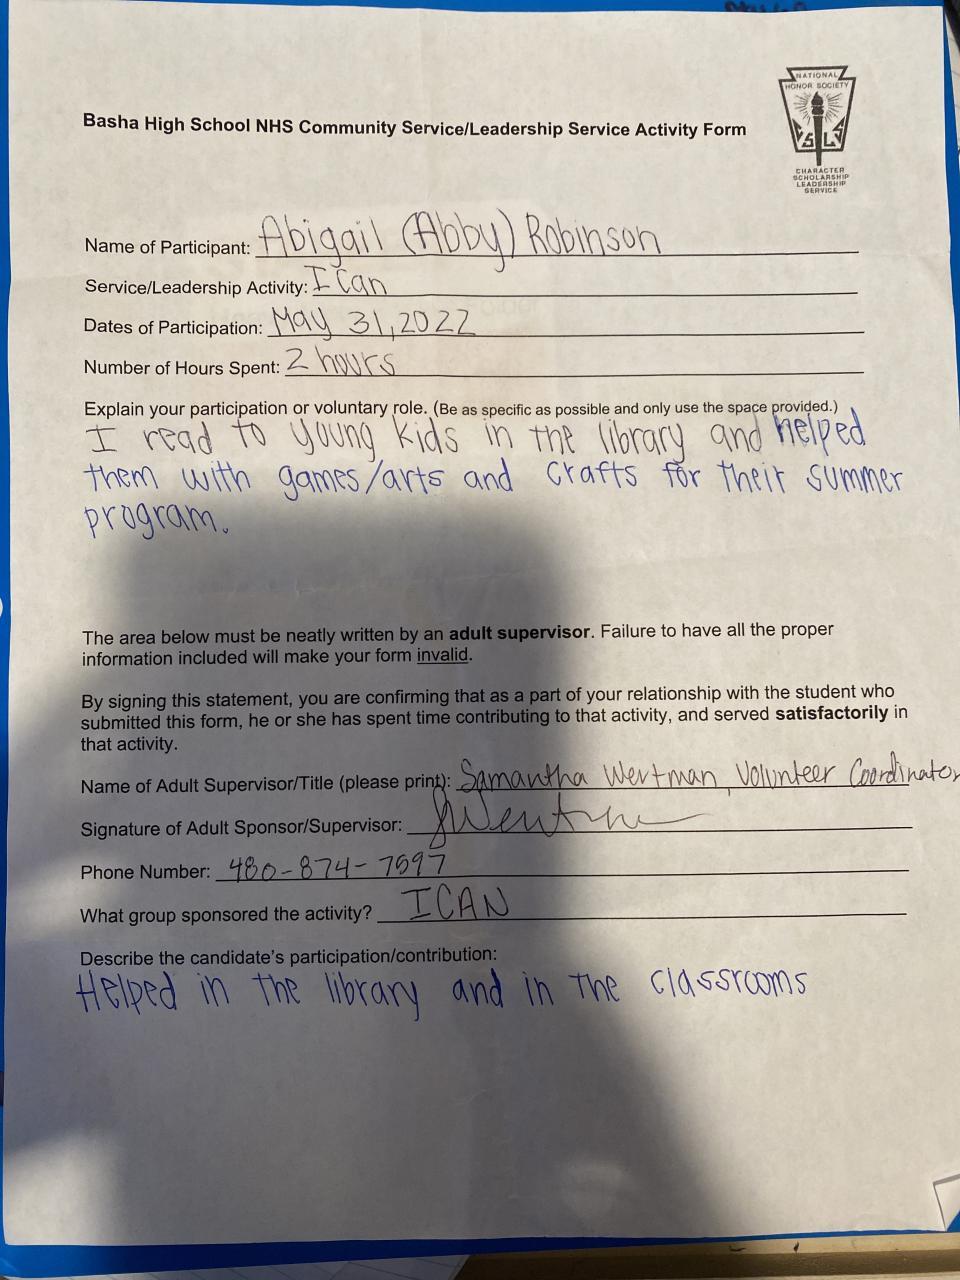 NATIONAL
HONOR SOCIETY
C S L S
CHARACTER
SCHOLARSHIP
LEADERSHIP
SERVICE
Basha High School NHS Community Service/Leadership Service Activity Form
Name of Participant: Abigail (Abby) Robinson
Service/Leadership Activity: I Can
Dates of Participation: May 31, 2022
Number of Hours Spent: 2 hours
Explain your participation or voluntary role. (Be as specific as possible and only use the space provided.)
I read to young kids in the library and helped
them with games/arts and crafts for their summer
program.
The area below must be neatly written by an adult supervisor. Failure to have all the proper
information included will make your form invalid.
By signing this statement, you are confirming that as a part of your relationship with the student who
submitted this form, he or she has spent time contributing to that activity, and served satisfactorily in
that activity.
Name of Adult Supervisor/Title (please print): Samantha Wertman, Volunteer Coordinator
Signature of Adult Sponsor/Supervisor: SWertm
Phone Number: 480-874-7597
What group sponsored the activity? ICAN
Describe the candidate's participation/contribution:
Helped in the library and in the classrooms